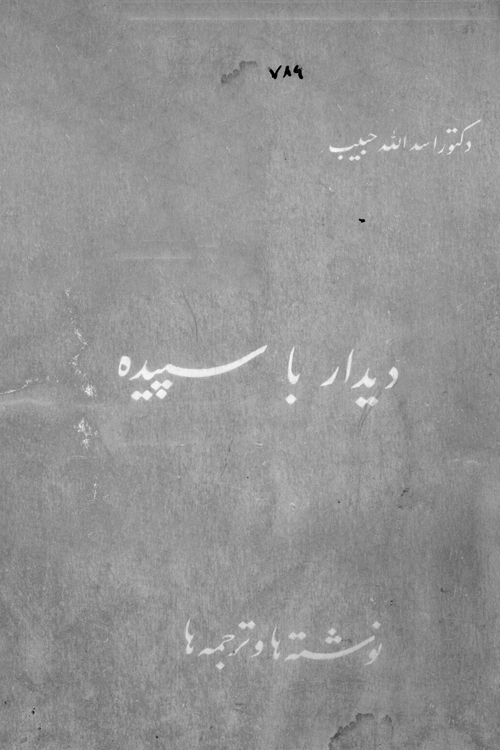 ۷۸۹
دکتور اسد الله حبیب
دیدار با سپیده
نوشته ها و ترجمه ها